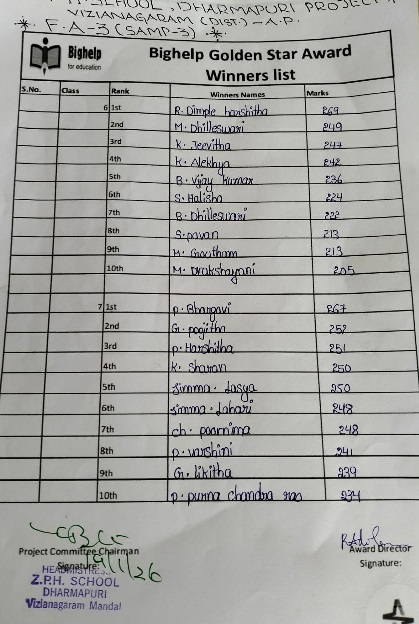 SCHOOL, DHARMAPURI PROJECT
VIZIANAGARAM (DIST.) - A.P.
* F.A-3 (SAMP-3) *
Bighelp
for education
Bighelp Golden Star Award
Winners list
S.No. Class Rank Winners Names Marks
6 1st R. Dimple harshitha 269
2nd M. Dhilleswari 249
3rd K. Jeevitha 247
4th K. Alekhya 242
5th B. Vijay Kumar 236
6th S. Halisha 224
7th B. Dhilleswari 222
8th S. pavan 213
9th M. Gowtham 213
10th M. Drakshayani 205
7 1st P. Bhargavi 267
2nd G. pojitha 252
3rd P. Harshitha 251
4th K. Sharan 250
5th Simma. Lasya 250
6th Simma. Lahari 248
7th Ch. poornima 248
8th P. varshini 241
9th G. likitha 239
10th P. purna chandra rao 234
Project Committee Chairman Award Director
Signature: Signature:
19/1/26
HEADMISTRESS
Z.P.H. SCHOOL
DHARMAPURI
Vizianagaram Mandal